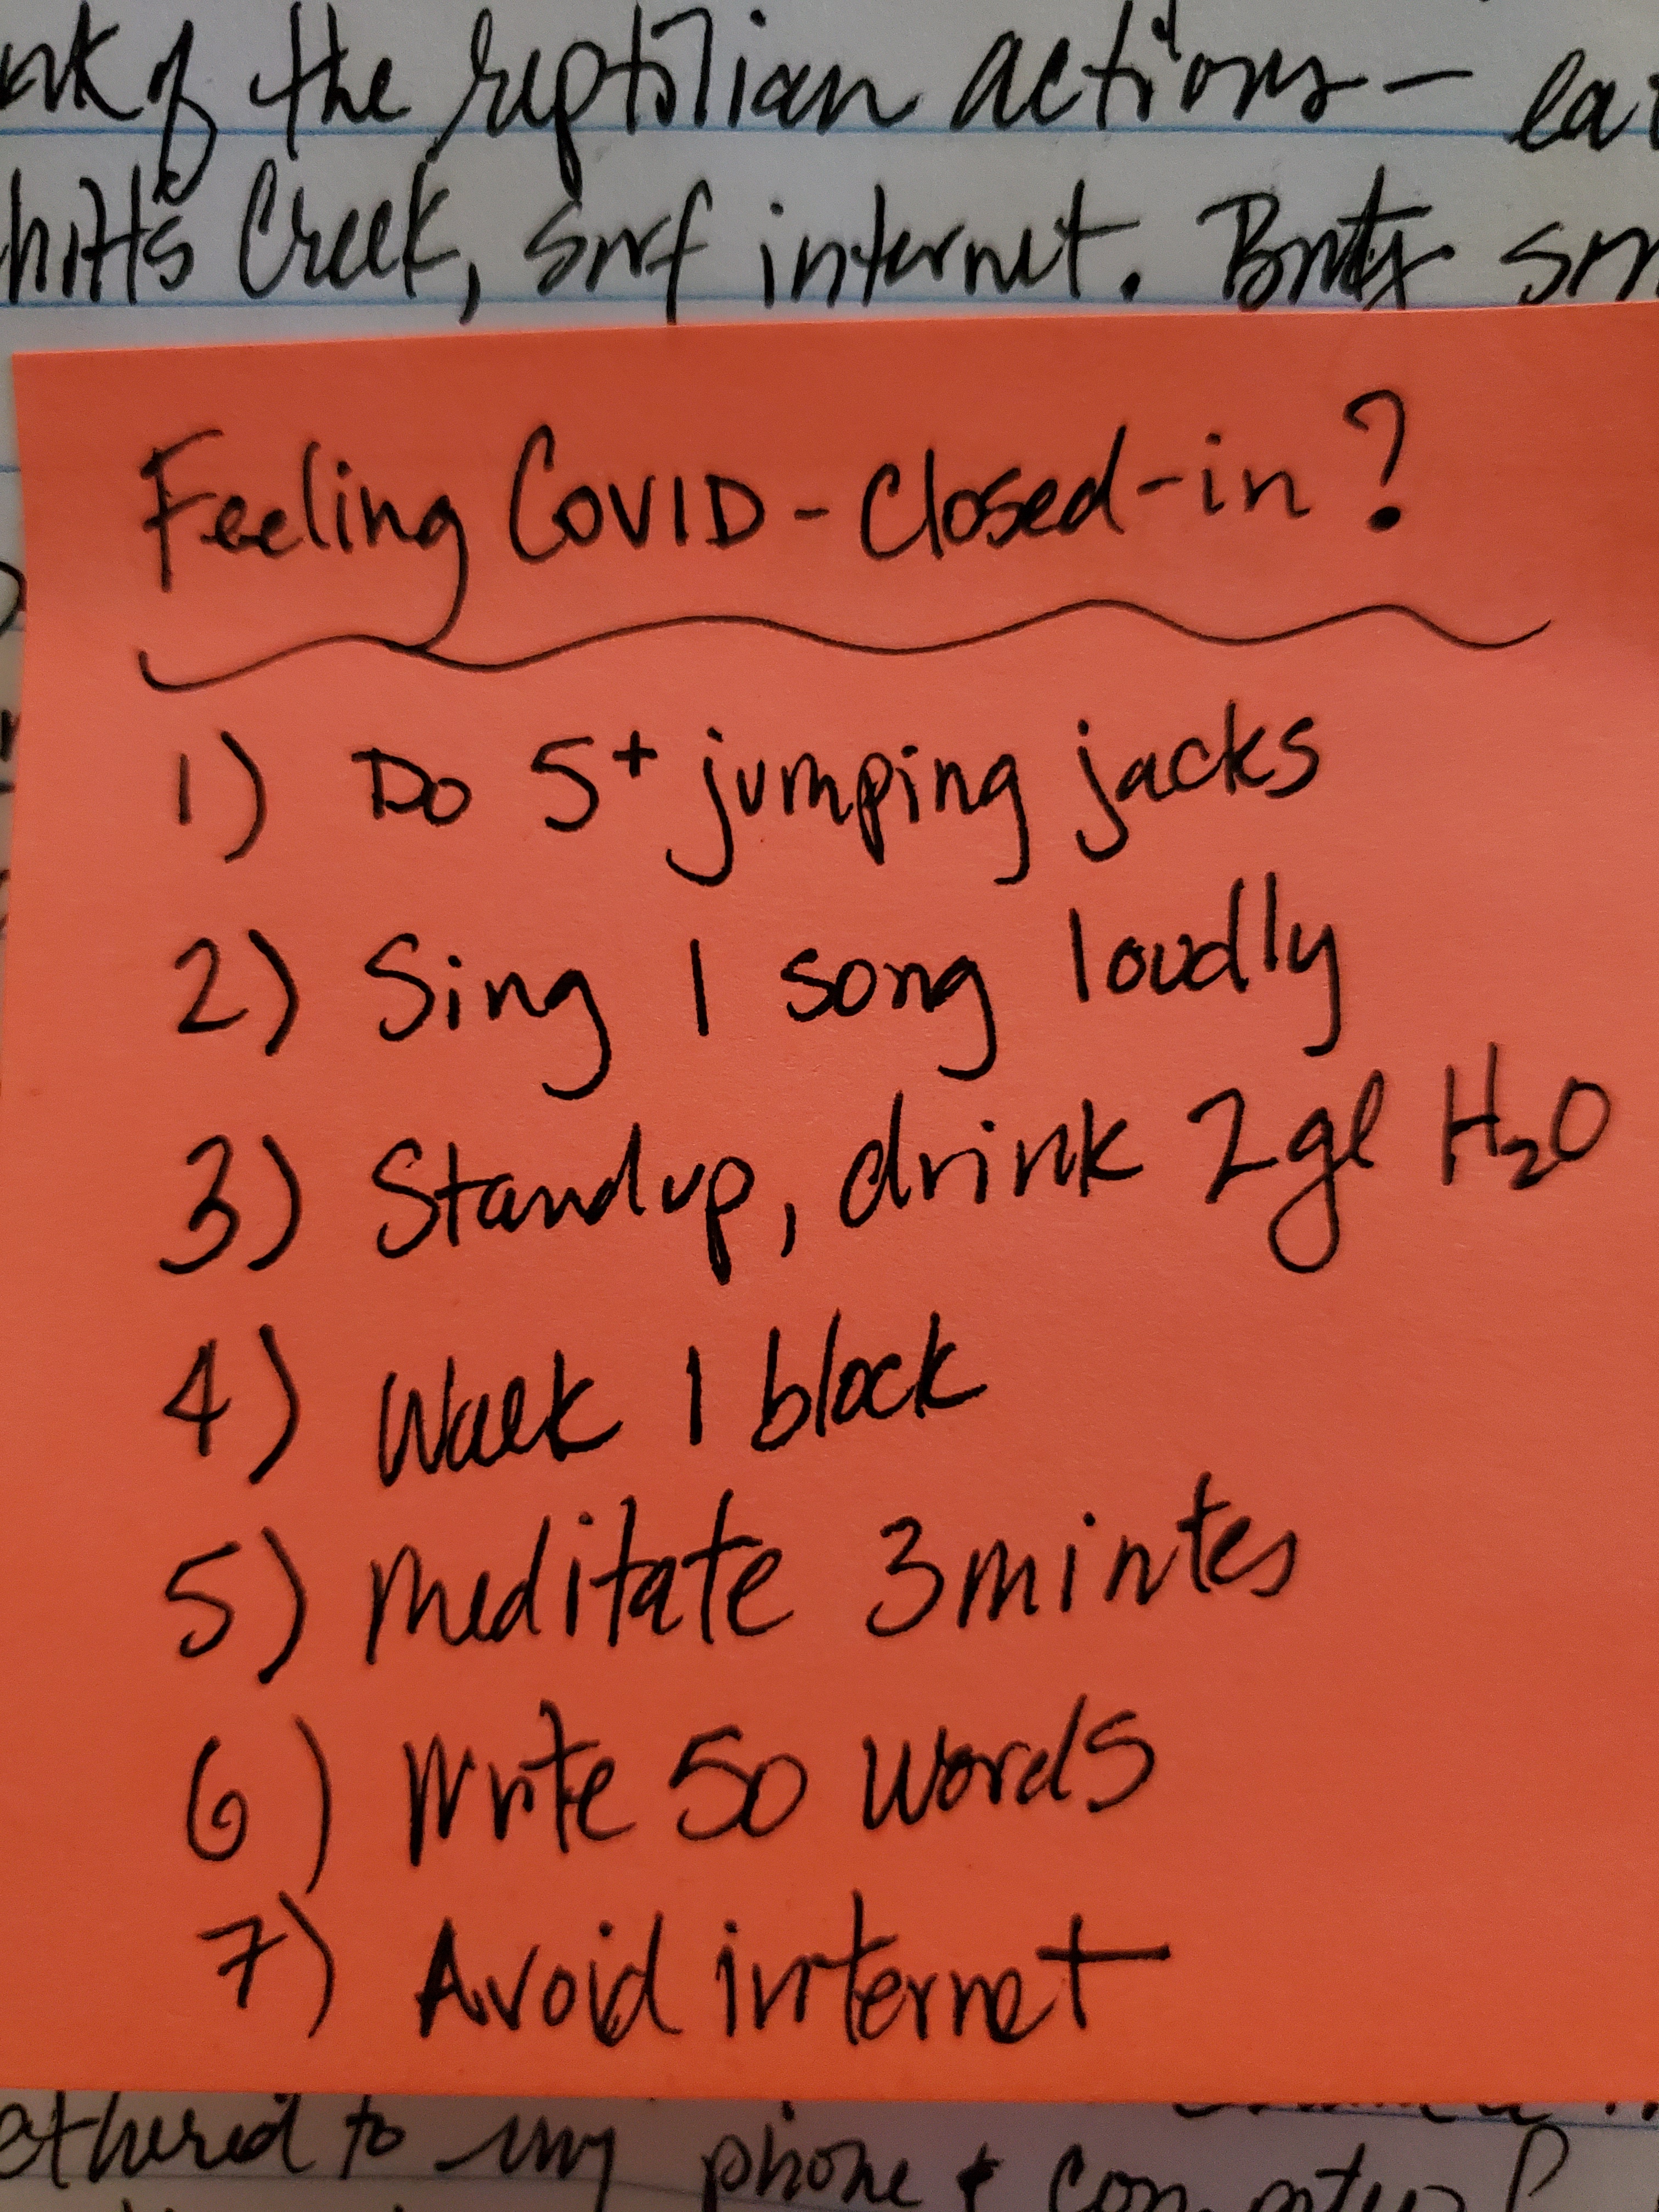 of the reptilian actions— eat
hitt's Creek, surf internet. But
Feeling COVID-Closed-in?
1) Do 5+ jumping jacks
2) Sing 1 song loudly
3) Standup, drink 2gl H₂O
4) Walk 1 block
5) Meditate 3 minutes
6) Write 50 words
7) Avoid internet
ethered to my phone & computer